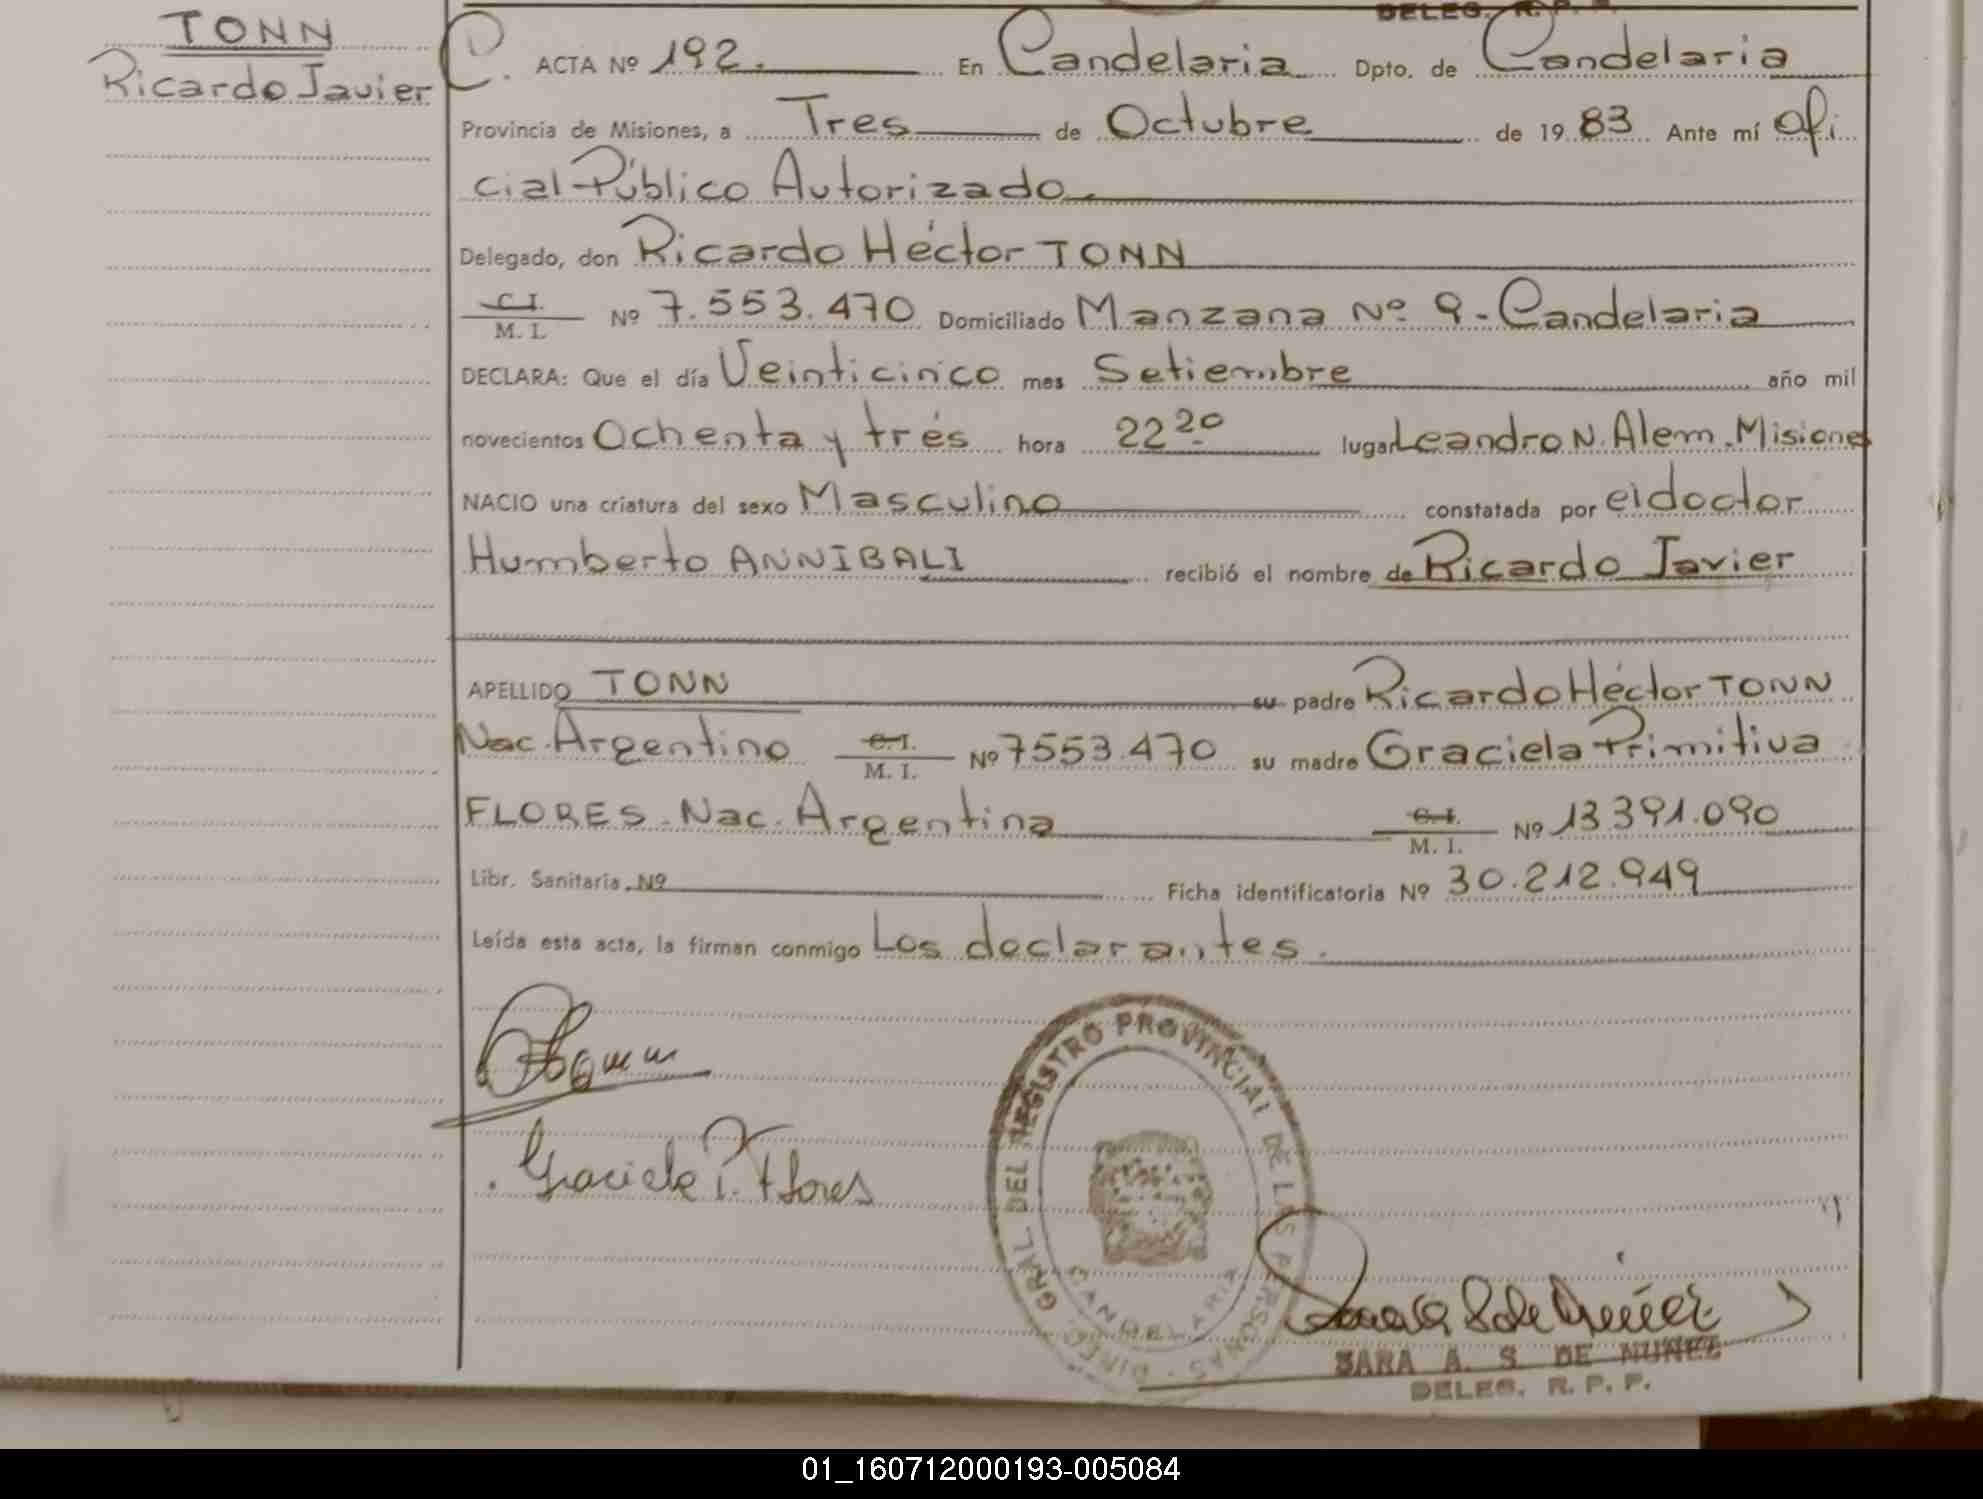 TONN
Ricardo Javier
DELEG. R. P. P.
C. ACTA Nº 192. En Candelaria Dpto. de Candelaria
Provincia de Misiones, a Tres de Octubre de 19 83 Ante mí ofi
cial Público Autorizado.
Delegado, don Ricardo Héctor TONN
C.I. M. I. Nº 7.553.470 Domiciliado Manzana Nº 9 - Candelaria
DECLARA: Que el día Veinticinco mes Setiembre año mil
novecientos Ochenta y trés hora 22 20 lugar Leandro N. Alem. Misiones
NACIO una criatura del sexo Masculino constatada por el doctor
Humberto ANNIBALI recibió el nombre de Ricardo Javier
APELLIDO TONN su padre Ricardo Héctor TONN
Nac. Argentino C.I. M. I. Nº 7553.470 su madre Graciela Primitiva
FLORES. Nac. Argentina C.I. M. I. Nº 13391.090
Libr. Sanitaria Nº Ficha identificatoria Nº 30.212.949
Leída esta acta, la firman conmigo Los declarantes.
Graciela P. Flores
DIREC. GRAL DEL REGISTRO PROVINCIAL DE LAS PERSONAS
CANDELARIA
SARA A. S. DE NUÑEZ
DELEG. R. P. P.
01_160712000193-005084